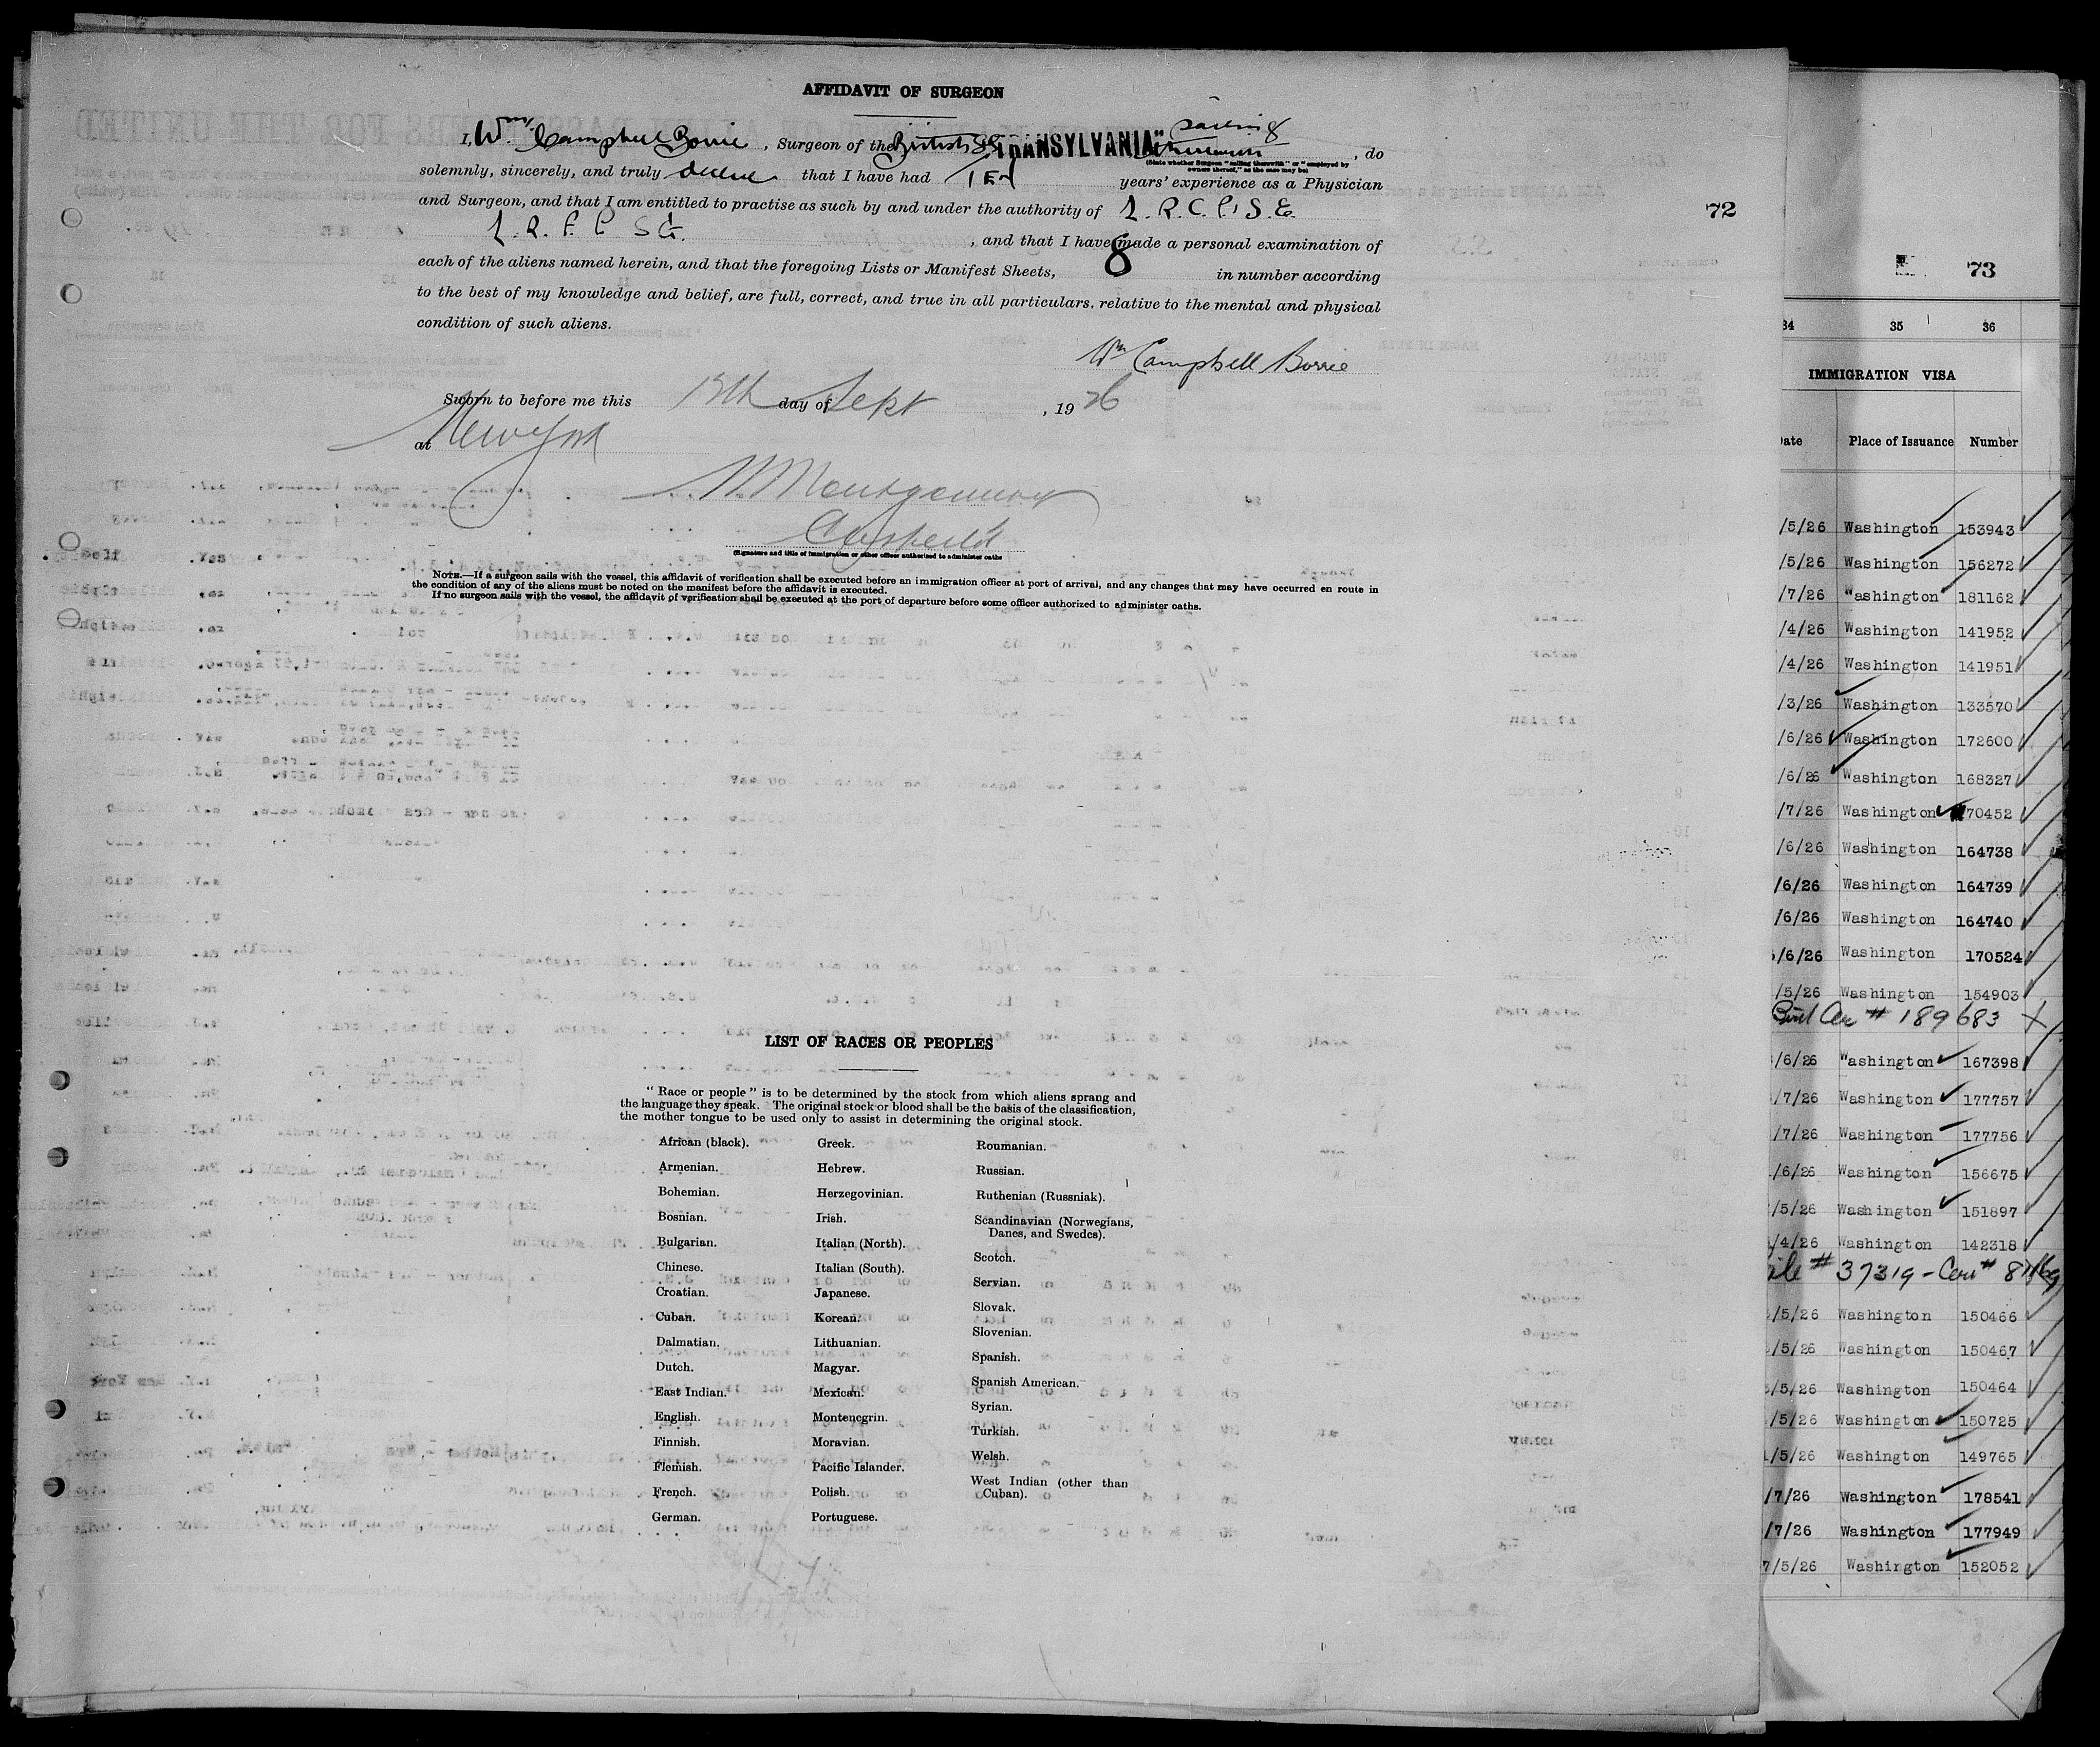 AFFIDAVIT OF SURGEON
I, Wm Campbell Borrie, Surgeon of the British SS "TRANSYLVANIA" sailing therewith, do
(State whether Surgeon "sailing therewith" or "employed by
owners thereof," as the case may be)
solemnly, sincerely, and truly declare that I have had TEN years' experience as a Physician
and Surgeon, and that I am entitled to practise as such by and under the authority of L.R.C.P.S.E.
L.R.F.P.S.G., and that I have made a personal examination of
each of the aliens named herein, and that the foregoing Lists or Manifest Sheets, 8 in number according
to the best of my knowledge and belief, are full, correct, and true in all particulars, relative to the mental and physical
condition of such aliens.
Wm Campbell Borrie
Sworn to before me this 13th day of Sept, 1926
at New York
Montgomery
(Signature and title of immigration or other officer authorized to administer oaths
NOTE.—If a surgeon sails with the vessel, this affidavit of verification shall be executed before an immigration officer at port of arrival, and any changes that may have occurred en route in
the condition of any of the aliens must be noted on the manifest before the affidavit is executed.
If no surgeon sails with the vessel, the affidavit of verification shall be executed at the port of departure before some officer authorized to administer oaths.
72
LIST OF RACES OR PEOPLES
"Race or people" is to be determined by the stock from which aliens sprang and
the language they speak. The original stock or blood shall be the basis of the classification,
the mother tongue to be used only to assist in determining the original stock.
African (black).
Armenian.
Bohemian.
Bosnian.
Bulgarian.
Chinese.
Croatian.
Cuban.
Dalmatian.
Dutch.
East Indian.
English.
Finnish.
Flemish.
French.
German.
Greek.
Hebrew.
Herzegovinian.
Irish.
Italian (North).
Italian (South).
Japanese.
Korean.
Lithuanian.
Magyar.
Mexican.
Montenegrin.
Moravian.
Pacific Islander.
Polish.
Portuguese.
Roumanian.
Russian.
Ruthenian (Russniak).
Scandinavian (Norwegians,
Danes, and Swedes).
Scotch.
Servian.
Slovak.
Slovenian.
Spanish.
Spanish American.
Syrian.
Turkish.
Welsh.
West Indian (other than
Cuban).
73
34 35 36
IMMIGRATION VISA
Date Place of Issuance Number
/5/26 Washington 153943
/5/26 Washington 156272
/7/26 Washington 181162
/4/26 Washington 141952
/4/26 Washington 141951
/3/26 Washington 133570
/6/26 Washington 172600
/6/26 Washington 168327
/7/26 Washington 70452
/6/26 Washington 164738
/6/26 Washington 164739
/6/26 Washington 164740
/6/26 Washington 170524
/5/26 Washington 154903
# 189683
/6/26 Washington 167398
/7/26 Washington 177757
/7/26 Washington 177756
/6/26 Washington 156675
/5/26 Washington 151897
/4/26 Washington 142318
# 37319 - Cer #
/5/26 Washington 150466
/5/26 Washington 150467
/5/26 Washington 150464
/5/26 Washington 150725
/5/26 Washington 149765
/7/26 Washington 178541
/7/26 Washington 177949
7/5/26 Washington 152052